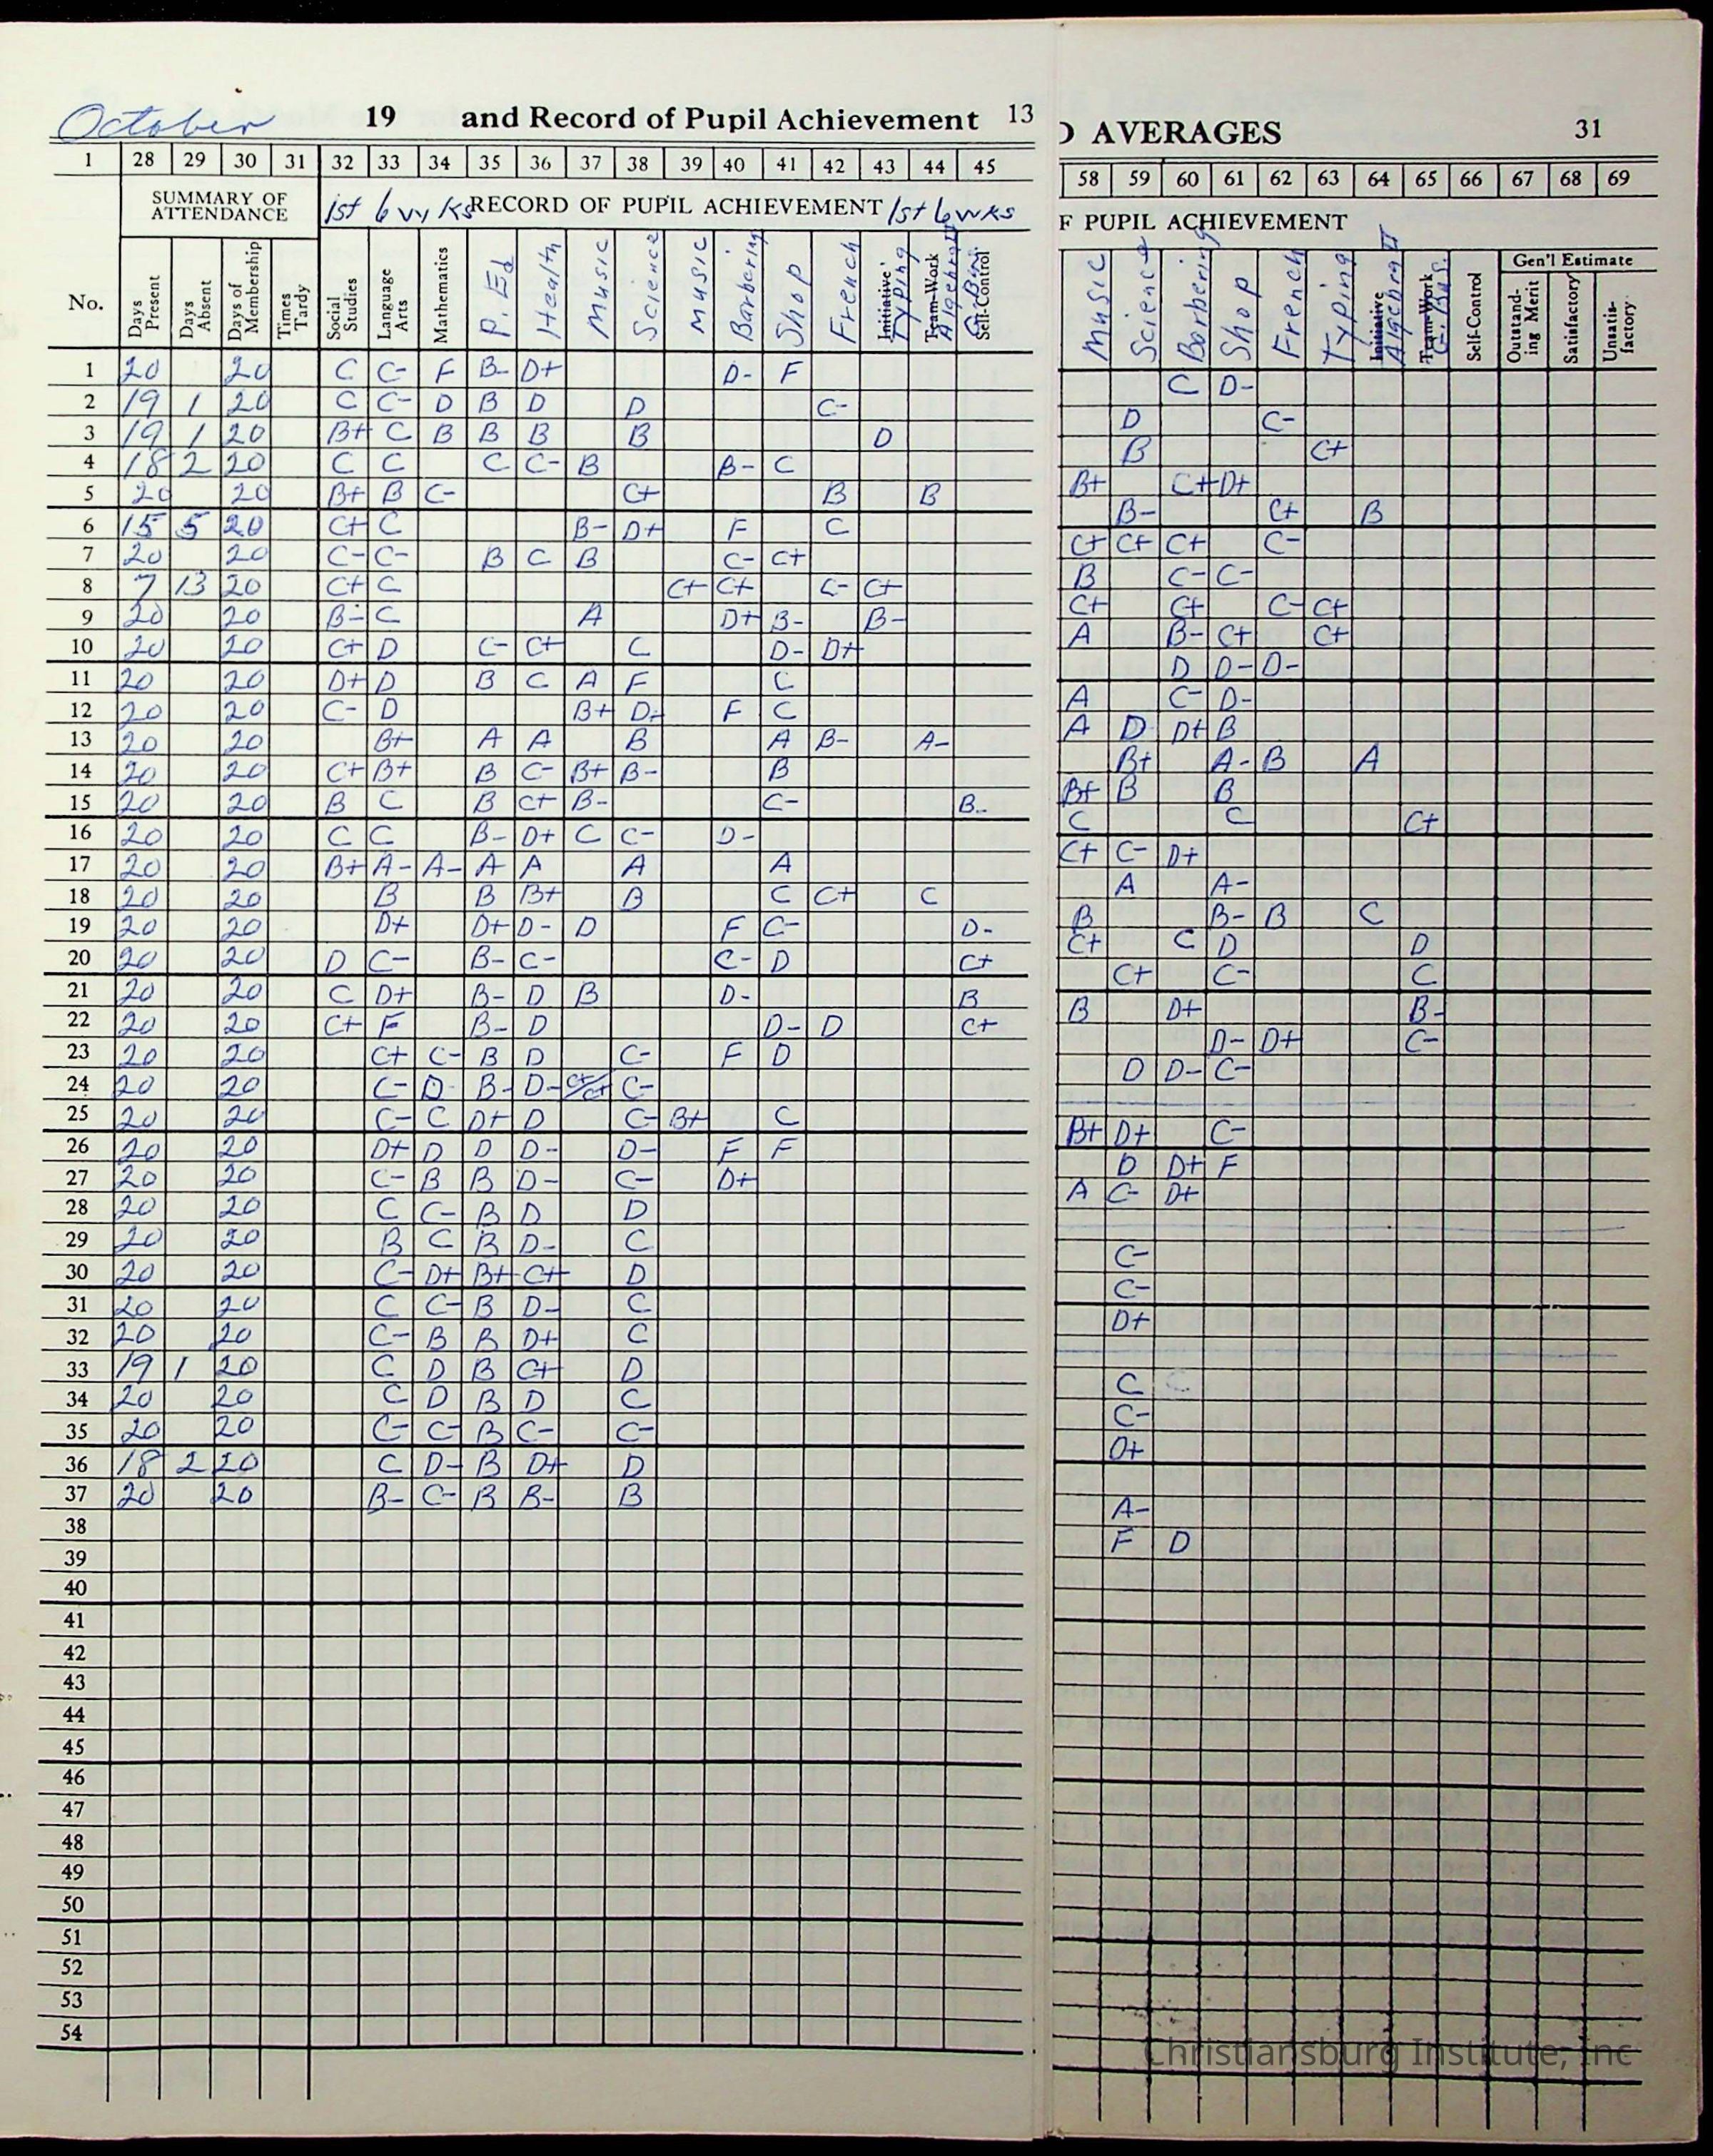 October 19 and Record of Pupil Achievement 13
1 28 29 30 31 32 33 34 35 36 37 38 39 40 41 42 43 44 45
SUMMARY OF ATTENDANCE 1st 6 wks RECORD OF PUPIL ACHIEVEMENT 1st 6 wks
No. Days Present Days Absent Days of Membership Times Tardy Social Studies Language Arts Mathematics P. Ed Health Music Science Music Barbering Shop French Initiative Typing Team-Work Algebra II G. Bus. Self-Control
1 20 20 C C- F B- D+ D- F
2 19 1 20 C C- D B D D C-
3 19 1 20 B+ C B B B B D
4 18 2 20 C C C C- B B- C
5 20 20 B+ B C- C+ B B
6 15 5 20 C+ C B- D+ F C
7 20 20 C- C- B C B C- C+
8 7 13 20 C+ C C+ C+ C- C+
9 20 20 B- C A D+ B- B-
10 20 20 C+ D C- C+ C D- D+
11 20 20 D+ D B C A F C
12 20 20 C- D B+ D+ F C
13 20 20 B+ A A B A B- A-
14 20 20 C+ B+ B C- B+ B- B
15 20 20 B C B C+ B- C- B-
16 20 20 C C B- D+ C C- D-
17 20 20 B+ A- A- A A A A
18 20 20 B B B+ B C C+ C
19 20 20 D+ D+ D- D F C- D-
20 20 20 D C- B- C- C- D C+
21 20 20 C D+ B- D B D- B
22 20 20 C+ F B- D D- D C+
23 20 20 C+ C- B D C- F D
24 20 20 C- D- B- D- C-
25 20 20 C- C D+ D C- B+ C
26 20 20 D+ D D D- D- F F
27 20 20 C- B B D- C- D+
28 20 20 C C- B D D
29 20 20 B C B D- C
30 20 20 C- D+ B+ C+ D
31 20 20 C C- B D- C
32 20 20 C- B B D+ C
33 19 1 20 C D B C+ D
34 20 20 C D B D C
35 20 20 C- C- B C- C-
36 18 2 20 C D- B D+ D
37 20 20 B- C- B B- B
38
39
40
41
42
43
44
45
46
47
48
49
50
51
52
53
54
D AVERAGES 31
58 59 60 61 62 63 64 65 66 67 68 69
F PUPIL ACHIEVEMENT
Gen'l Estimate
Music Science Barbering Shop French Typing Initiative Algebra II Team-Work G. Bus. Self-Control Outstanding Merit Satisfactory Unsatis-factory
C D-
D C-
B C+
B+ C+ D+
B- C+ B
C+ C+ C+ C-
B C- C-
C+ C+ C- C+
A B- C+ C+
D D- D-
A C- D-
A D D+ B
B+ A- B A
B+ B B
C C C+
C+ C- D+
A A-
B B- B C
C+ C D D
C+ C- C
B D+ B-
D- D+ C-
D D- C-
B+ D+ C-
D D+ F
A C- D+
C-
C-
D+
C
C-
D+
A-
F D
Christiansburg Institute, Inc